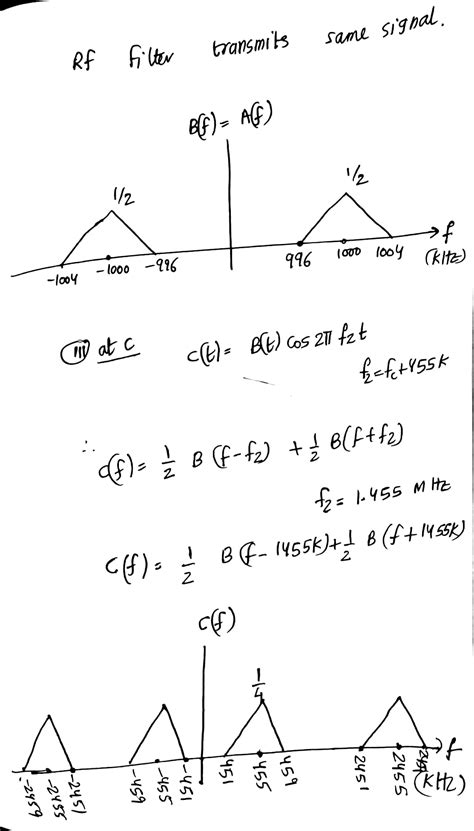 Rf filter transmits same signal.
B(f) = A(f)
1/2 1/2
-1004 -1000 -996 996 1000 1004 f
(KHz)
(iii) at C C(t) = B(t) cos 2π f2t
f2=fc+455K
∴ C(f) = 1/2 B (f-f2) + 1/2 B(f+f2)
f2 = 1.455 MHz
C(f) = 1/2 B(f-1455K)+1/2 B (f+1455K)
C(f)
1/4
f
-2459 -2455 -2451 -459 -455 -451 451 455 459 2451 2455 (KHz)